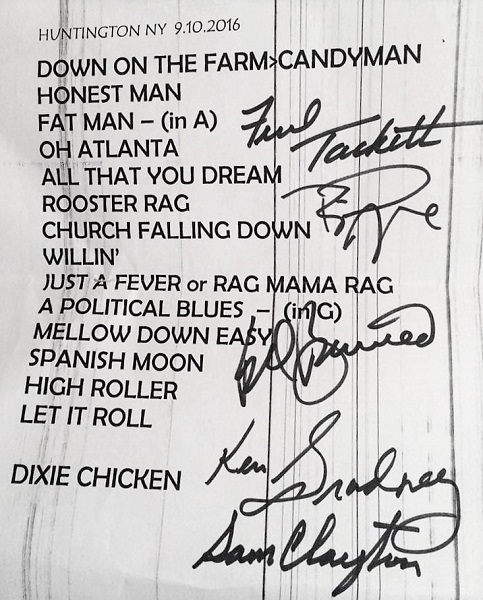 HUNTINGTON NY 9.10.2016
DOWN ON THE FARM>CANDYMAN
HONEST MAN
FAT MAN – (in A)
Fred Tackett
OH ATLANTA
ALL THAT YOU DREAM
ROOSTER RAG
CHURCH FALLING DOWN
WILLIN'
JUST A FEVER or RAG MAMA RAG
A POLITICAL BLUES – (in G)
MELLOW DOWN EASY
SPANISH MOON
HIGH ROLLER
LET IT ROLL
Ken Gradney
DIXIE CHICKEN
Sam Clayton